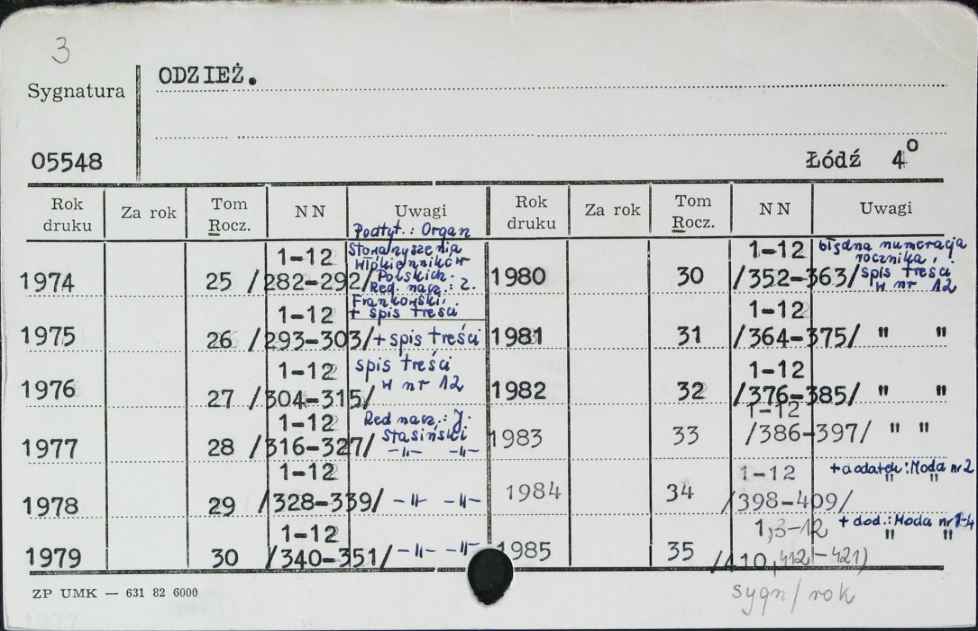 3
Sygnatura ODZIEŻ.
05548 Łódź 4º
Rok druku Za rok Tom Rocz. NN Uwagi Rok druku Za rok Tom Rocz. NN Uwagi
Podtyt.: Organ
Stowarzyszenia
Włókienników
Polskich.
Red. nacz.: Z.
Frankowski.
+ spis treści
1974 25 1-12 /282-292/
1975 26 1-12 /293-303/ + spis treści
1976 27 1-12 /304-315/ spis treści w nr 12
1977 28 1-12 /316-327/ Red. nacz.: J. Stasiński -"- -"-
1978 29 1-12 /328-339/ -"- -"-
1979 30 1-12 /340-351/ -"- -"-
1980 30 1-12 /352-363/ błędna numeracja rocznika, spis treści w nr 12
1981 31 1-12 /364-375/ " "
1982 32 1-12 /376-385/ " "
1983 33 1-12 /386-397/ " "
1984 34 1-12 /398-409/ + dodatek: Moda nr 2 " "
1985 35 1,3-12 /410,412-421) + dod.: Moda nr 1-4 " "
ZP UMK — 631 82 6000
sygn/rok